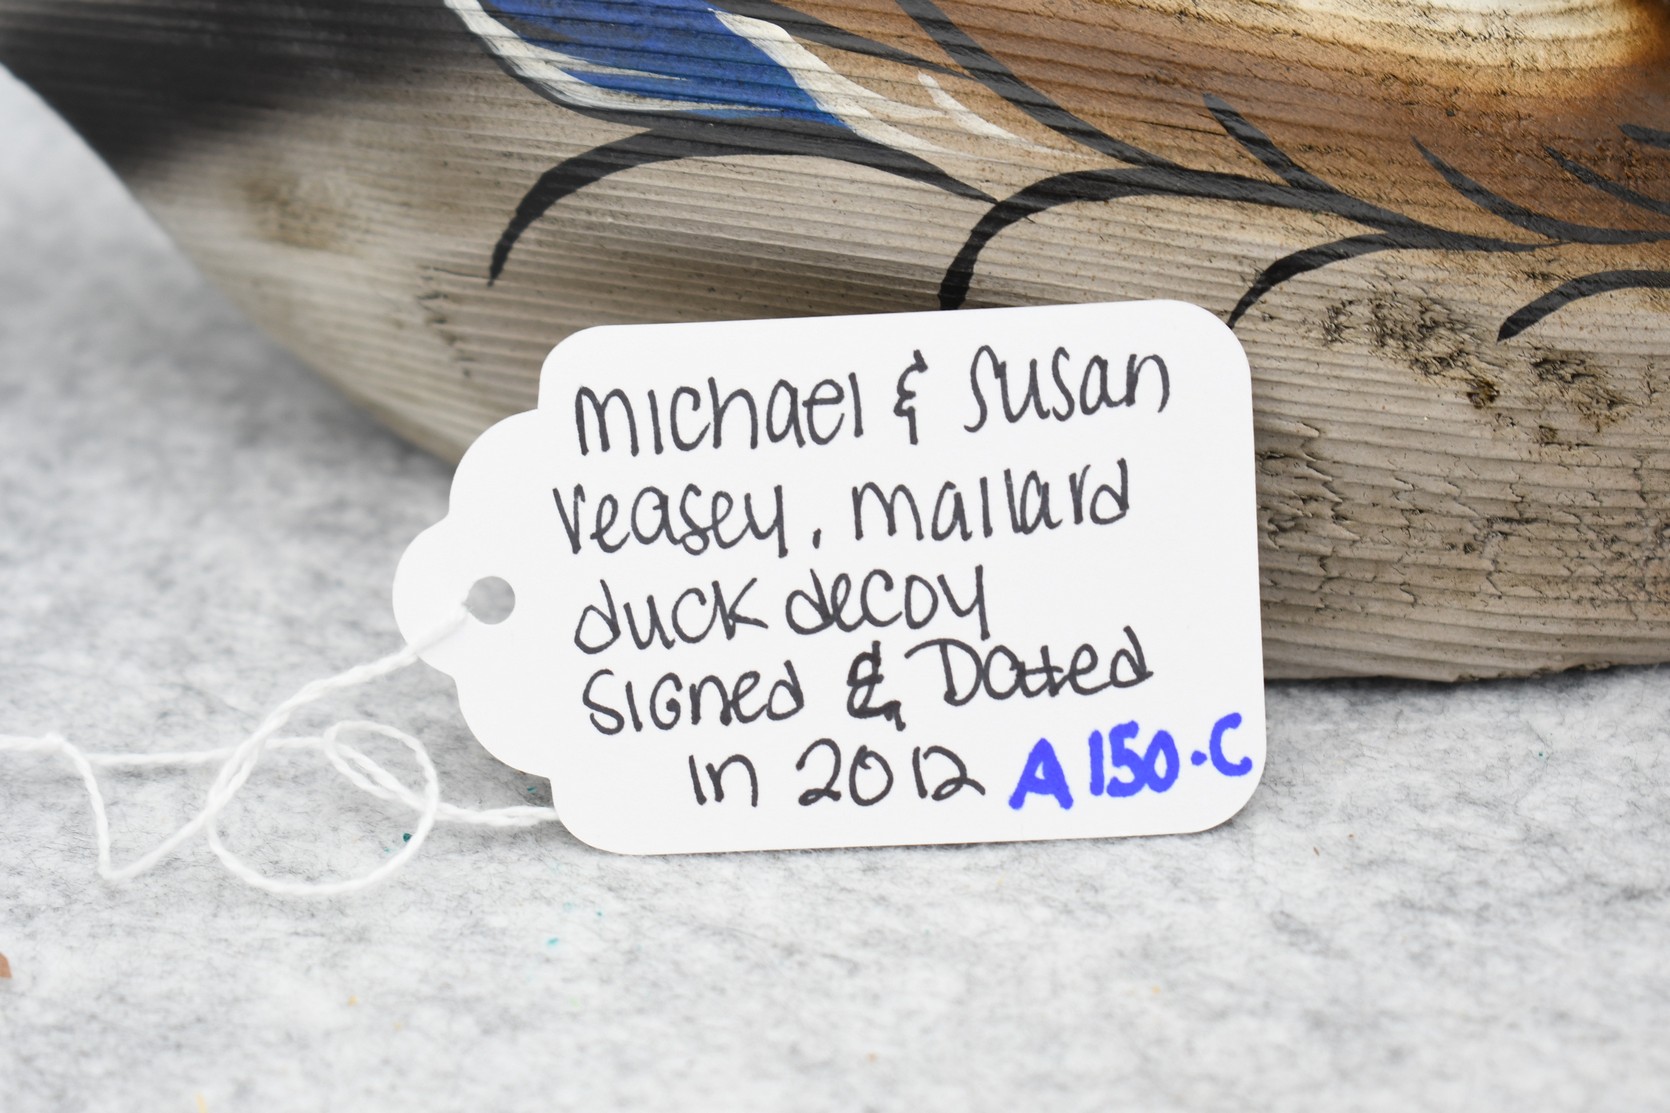 Michael & Susan
Veasey. Mallard
duck decoy
Signed & Dated
in 2012 A150-C